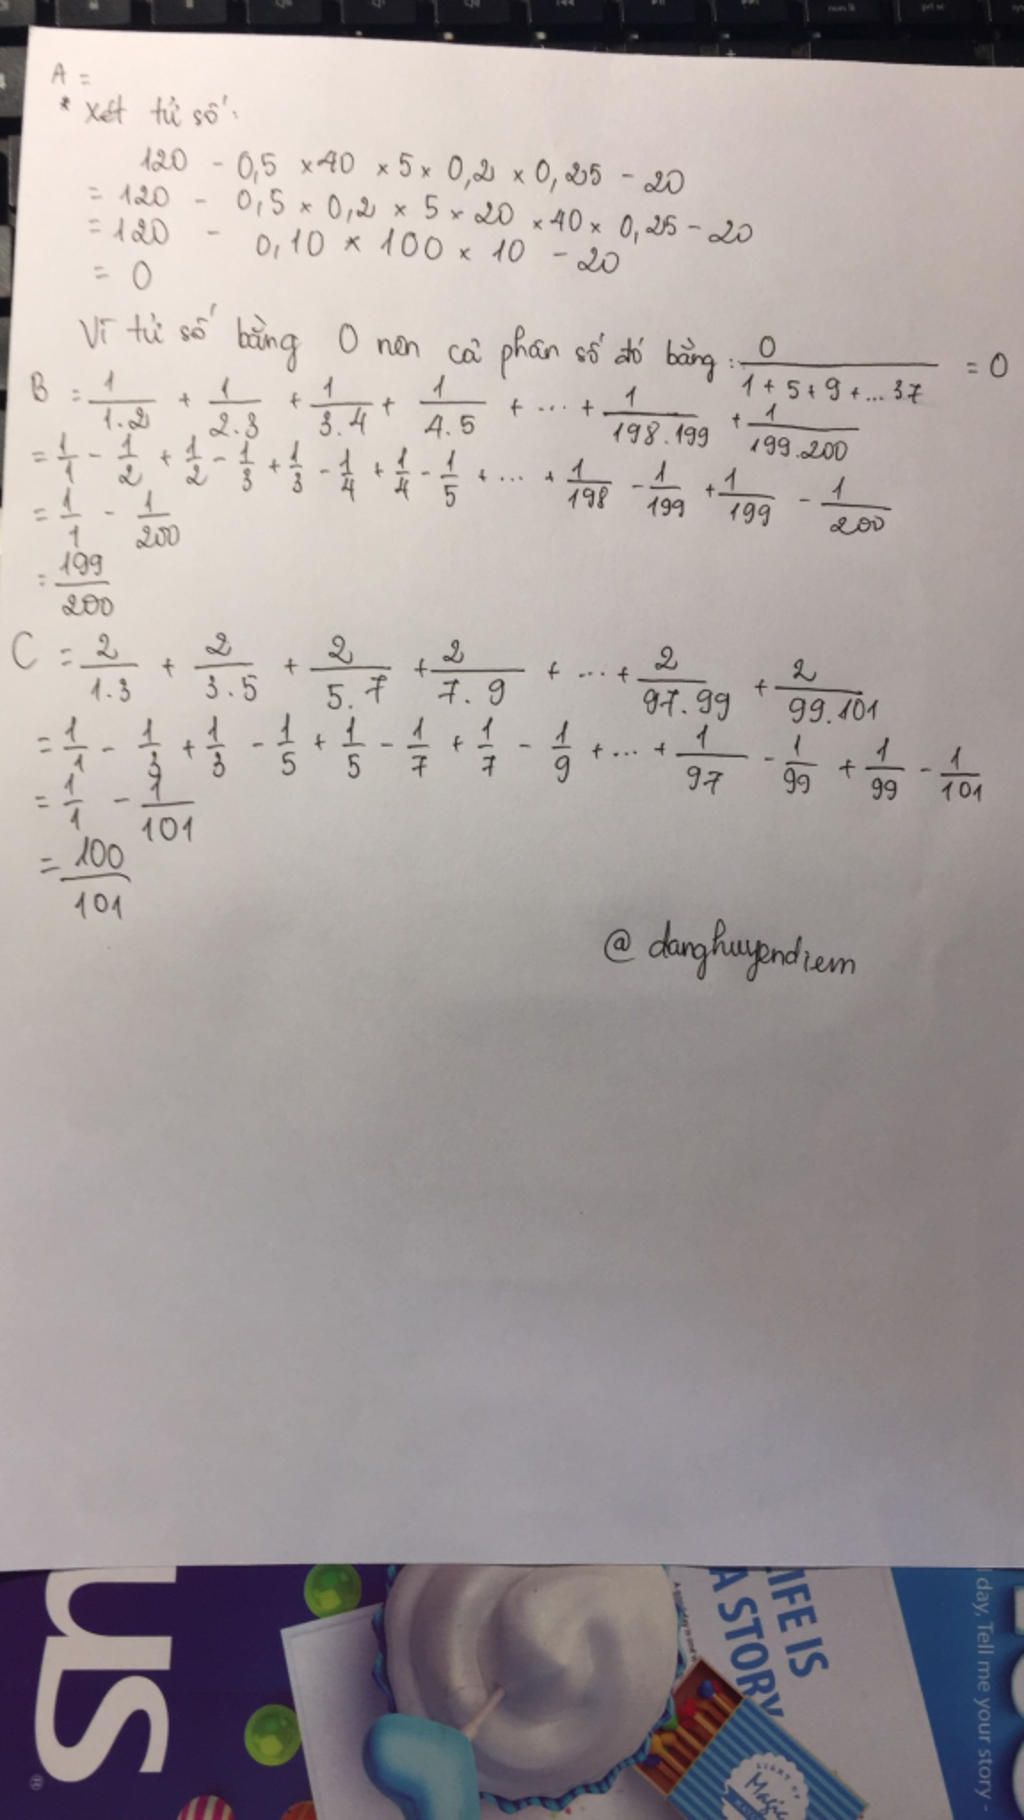 A =
* Xét tử số:
120 - 0,5 × 40 × 5 × 0,2 × 0,25 - 20
= 120 - 0,5 × 0,2 × 5 × 20 × 40 × 0,25 - 20
= 120 - 0,10 × 100 × 10 - 20
= 0
Vì tử số bằng 0 nên cả phân số đó bằng: 0/(1 + 5 + 9 + ... 37) = 0
B = 1/1.2 + 1/2.3 + 1/3.4 + 1/4.5 + ... + 1/198.199 + 1/199.200
= 1/1 - 1/2 + 1/2 - 1/3 + 1/3 - 1/4 + 1/4 - 1/5 + ... + 1/198 - 1/199 + 1/199 - 1/200
= 1/1 - 1/200
= 199/200
C = 2/1.3 + 2/3.5 + 2/5.7 + 2/7.9 + ... + 2/97.99 + 2/99.101
= 1/1 - 1/3 + 1/3 - 1/5 + 1/5 - 1/7 + 1/7 - 1/9 + ... + 1/97 - 1/99 + 1/99 - 1/101
= 1/1 - 1/101
= 100/101
@ danghuyendiem
sn
®
LIFE IS
A STORY
l day, Tell me your story -
LIGHT UP
Magic